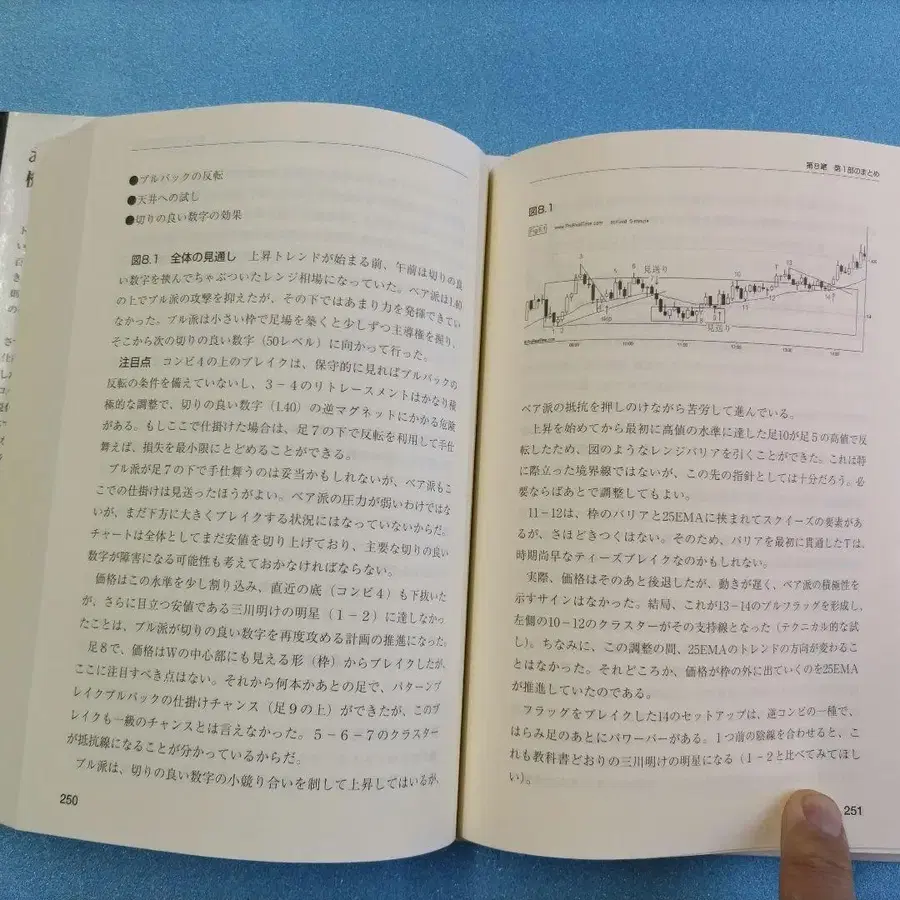 ●プルバックの反転
●天井への試し
●切りの良い数字の効果
図8.1　全体の見通し　上昇トレンドが始まる前、午前は切りの良
い数字を挟んでちゃぶついたレンジ相場になっていた。ベア派は1.40
の上でブル派の攻撃を抑えたが、その下ではあまり力を発揮できてい
なかった。ブル派は小さい枠で足場を築くと少しずつ主導権を握り、
そこから次の切りの良い数字（50レベル）に向かって行った。
注目点　コンビ4の上のブレイクは、保守的に見ればプルバックの
反転の条件を備えていないし、3－4のリトレースメントはかなり積
極的な調整で、切りの良い数字（1.40）の逆マグネットにかかる危険
がある。もしここで仕掛けた場合は、足7の下で反転を利用して手仕
舞えば、損失を最小限にとどめることができる。
ブル派が足7の下で手仕舞うのは妥当かもしれないが、ベア派もこ
こでの仕掛けは見送ったほうがよい。ベア派の圧力が弱いわけではな
いが、まだ下方に大きくブレイクする状況にはなっていないからだ。
チャートは全体としてまだ安値を切り上げており、主要な切りの良い
数字が障害になる可能性も考えておかなければならない。
価格はこの水準を少し割り込み、直近の底（コンビ4）も下抜いた
が、さらに目立つ安値である三川明けの明星（1－2）に達しなかっ
たことは、ブル派が切りの良い数字を再度攻める計画の推進になった。
足8で、価格はWの中心部にも見える形（枠）からブレイクしたが、
ここに注目すべき点はない。それから何本かあとの足で、パターンブ
レイクプルバックの仕掛けチャンス（足9の上）ができたが、このブ
レイクも一級のチャンスとは言えなかった。5－6－7のクラスター
が抵抗線になることが分かっているからだ。
ブル派は、切りの良い数字の小競り合いを制して上昇してはいるが、
250
第8章　第1部のまとめ
図8.1
www.ProRealTime.com
見送り
見送り
ベア派の抵抗を押しのけながら苦労して進んでいる。
上昇を始めてから最初に高値の水準に達した足10が足5の高値で反
転したため、図のようなレンジバリアを引くことができた。これは特
に際立った境界線ではないが、この先の指針としては十分だろう。必
要ならばあとで調整してもよい。
11－12は、枠のバリアと25EMAに挟まれてスクイーズの要素があ
るが、さほどきつくはない。そのため、バリアを最初に貫通したTは、
時期尚早なティーズブレイクなのかもしれない。
実際、価格はそのあと後退したが、動きが遅く、ベア派の積極性を
示すサインはなかった。結局、これが13－14のブルフラッグを形成し、
左側の10－12のクラスターがその支持線となった（テクニカル的な試
し）。ちなみに、この調整の間、25EMAのトレンドの方向が変わるこ
とはなかった。それどころか、価格が枠の外に出ていくのを25EMA
が推進していたのである。
フラッグをブレイクした14のセットアップは、逆コンビの一種で、
はらみ足のあとにパワーバーがある。1つ前の陰線を合わせると、こ
れも教科書どおりの三川明けの明星になる（1－2と比べてみてほし
い）。
251